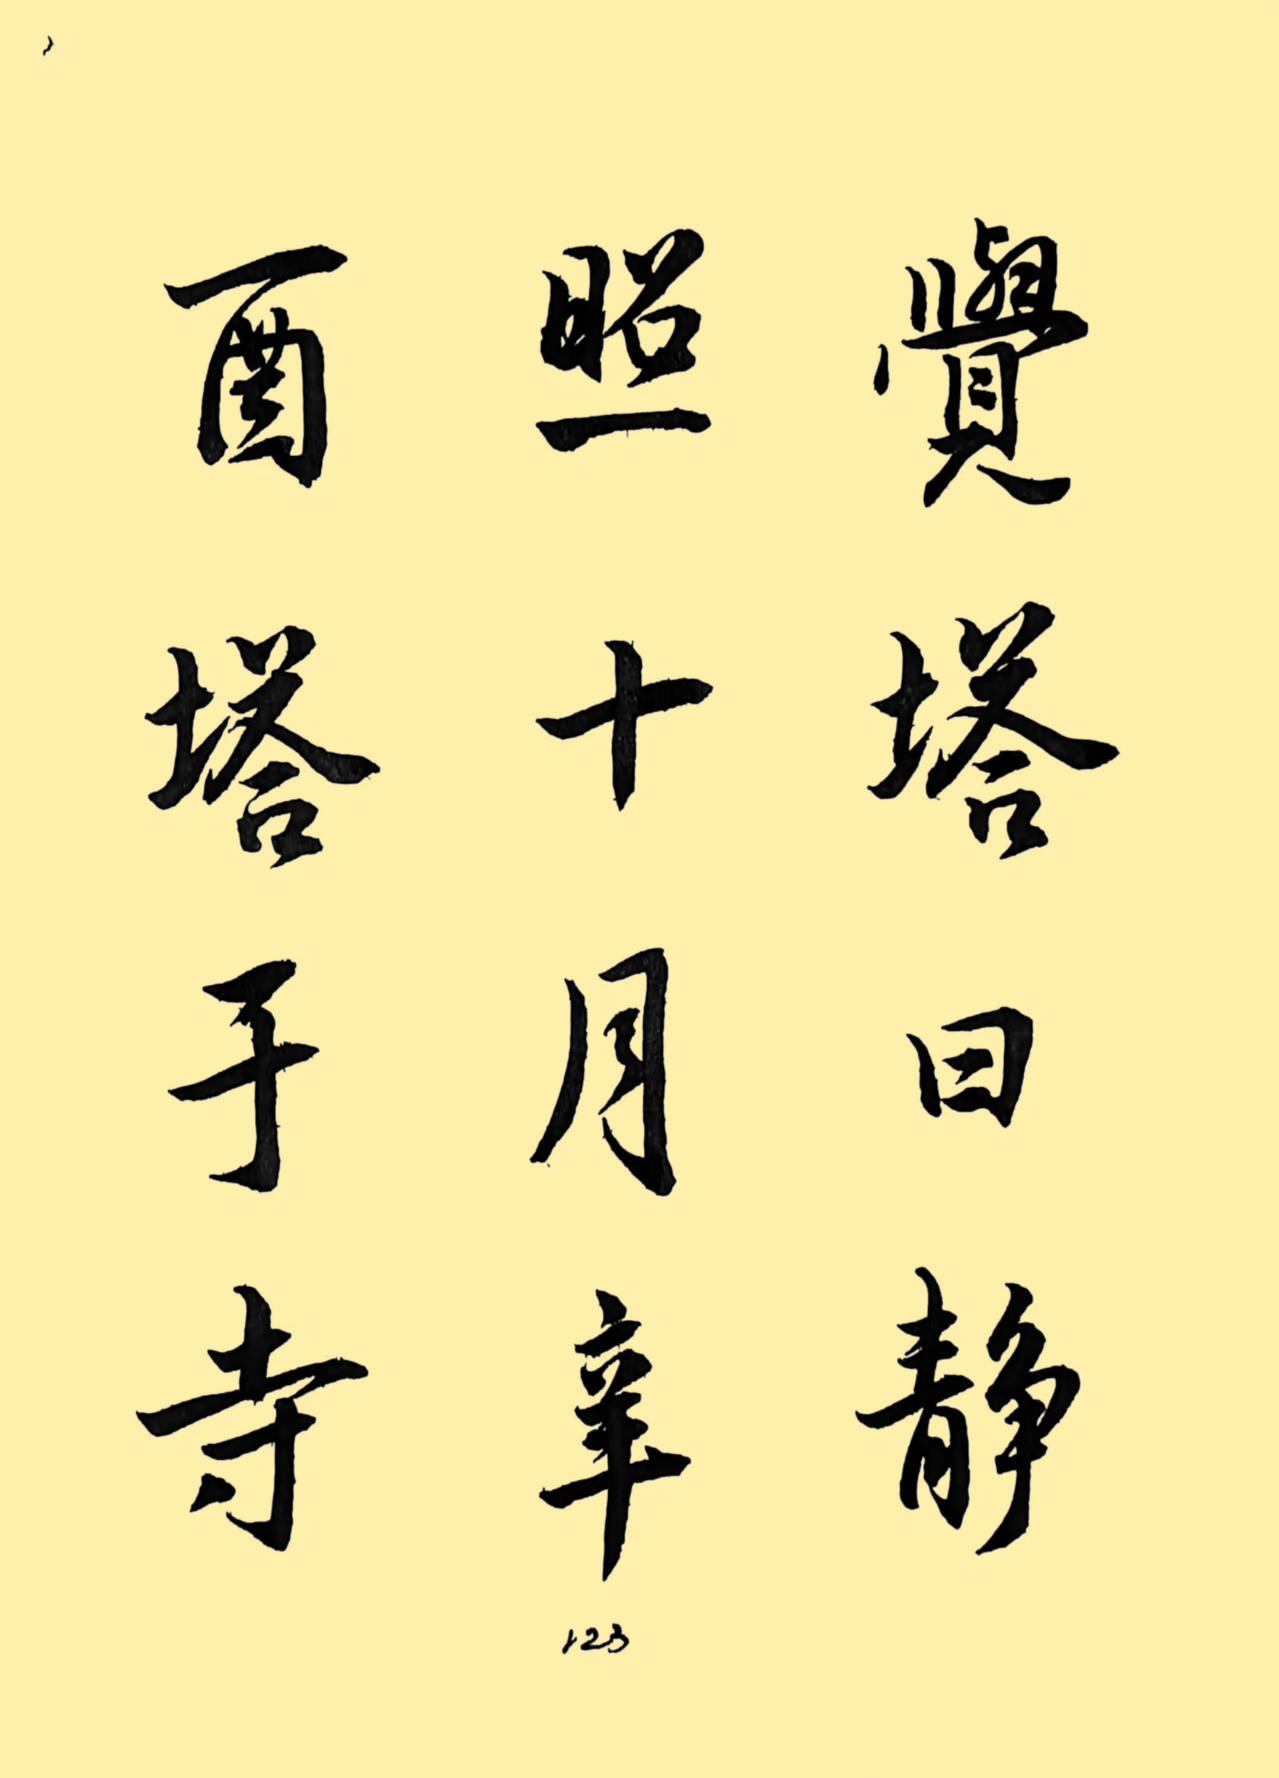 覺塔曰静
照十月辛
酉塔于寺
123